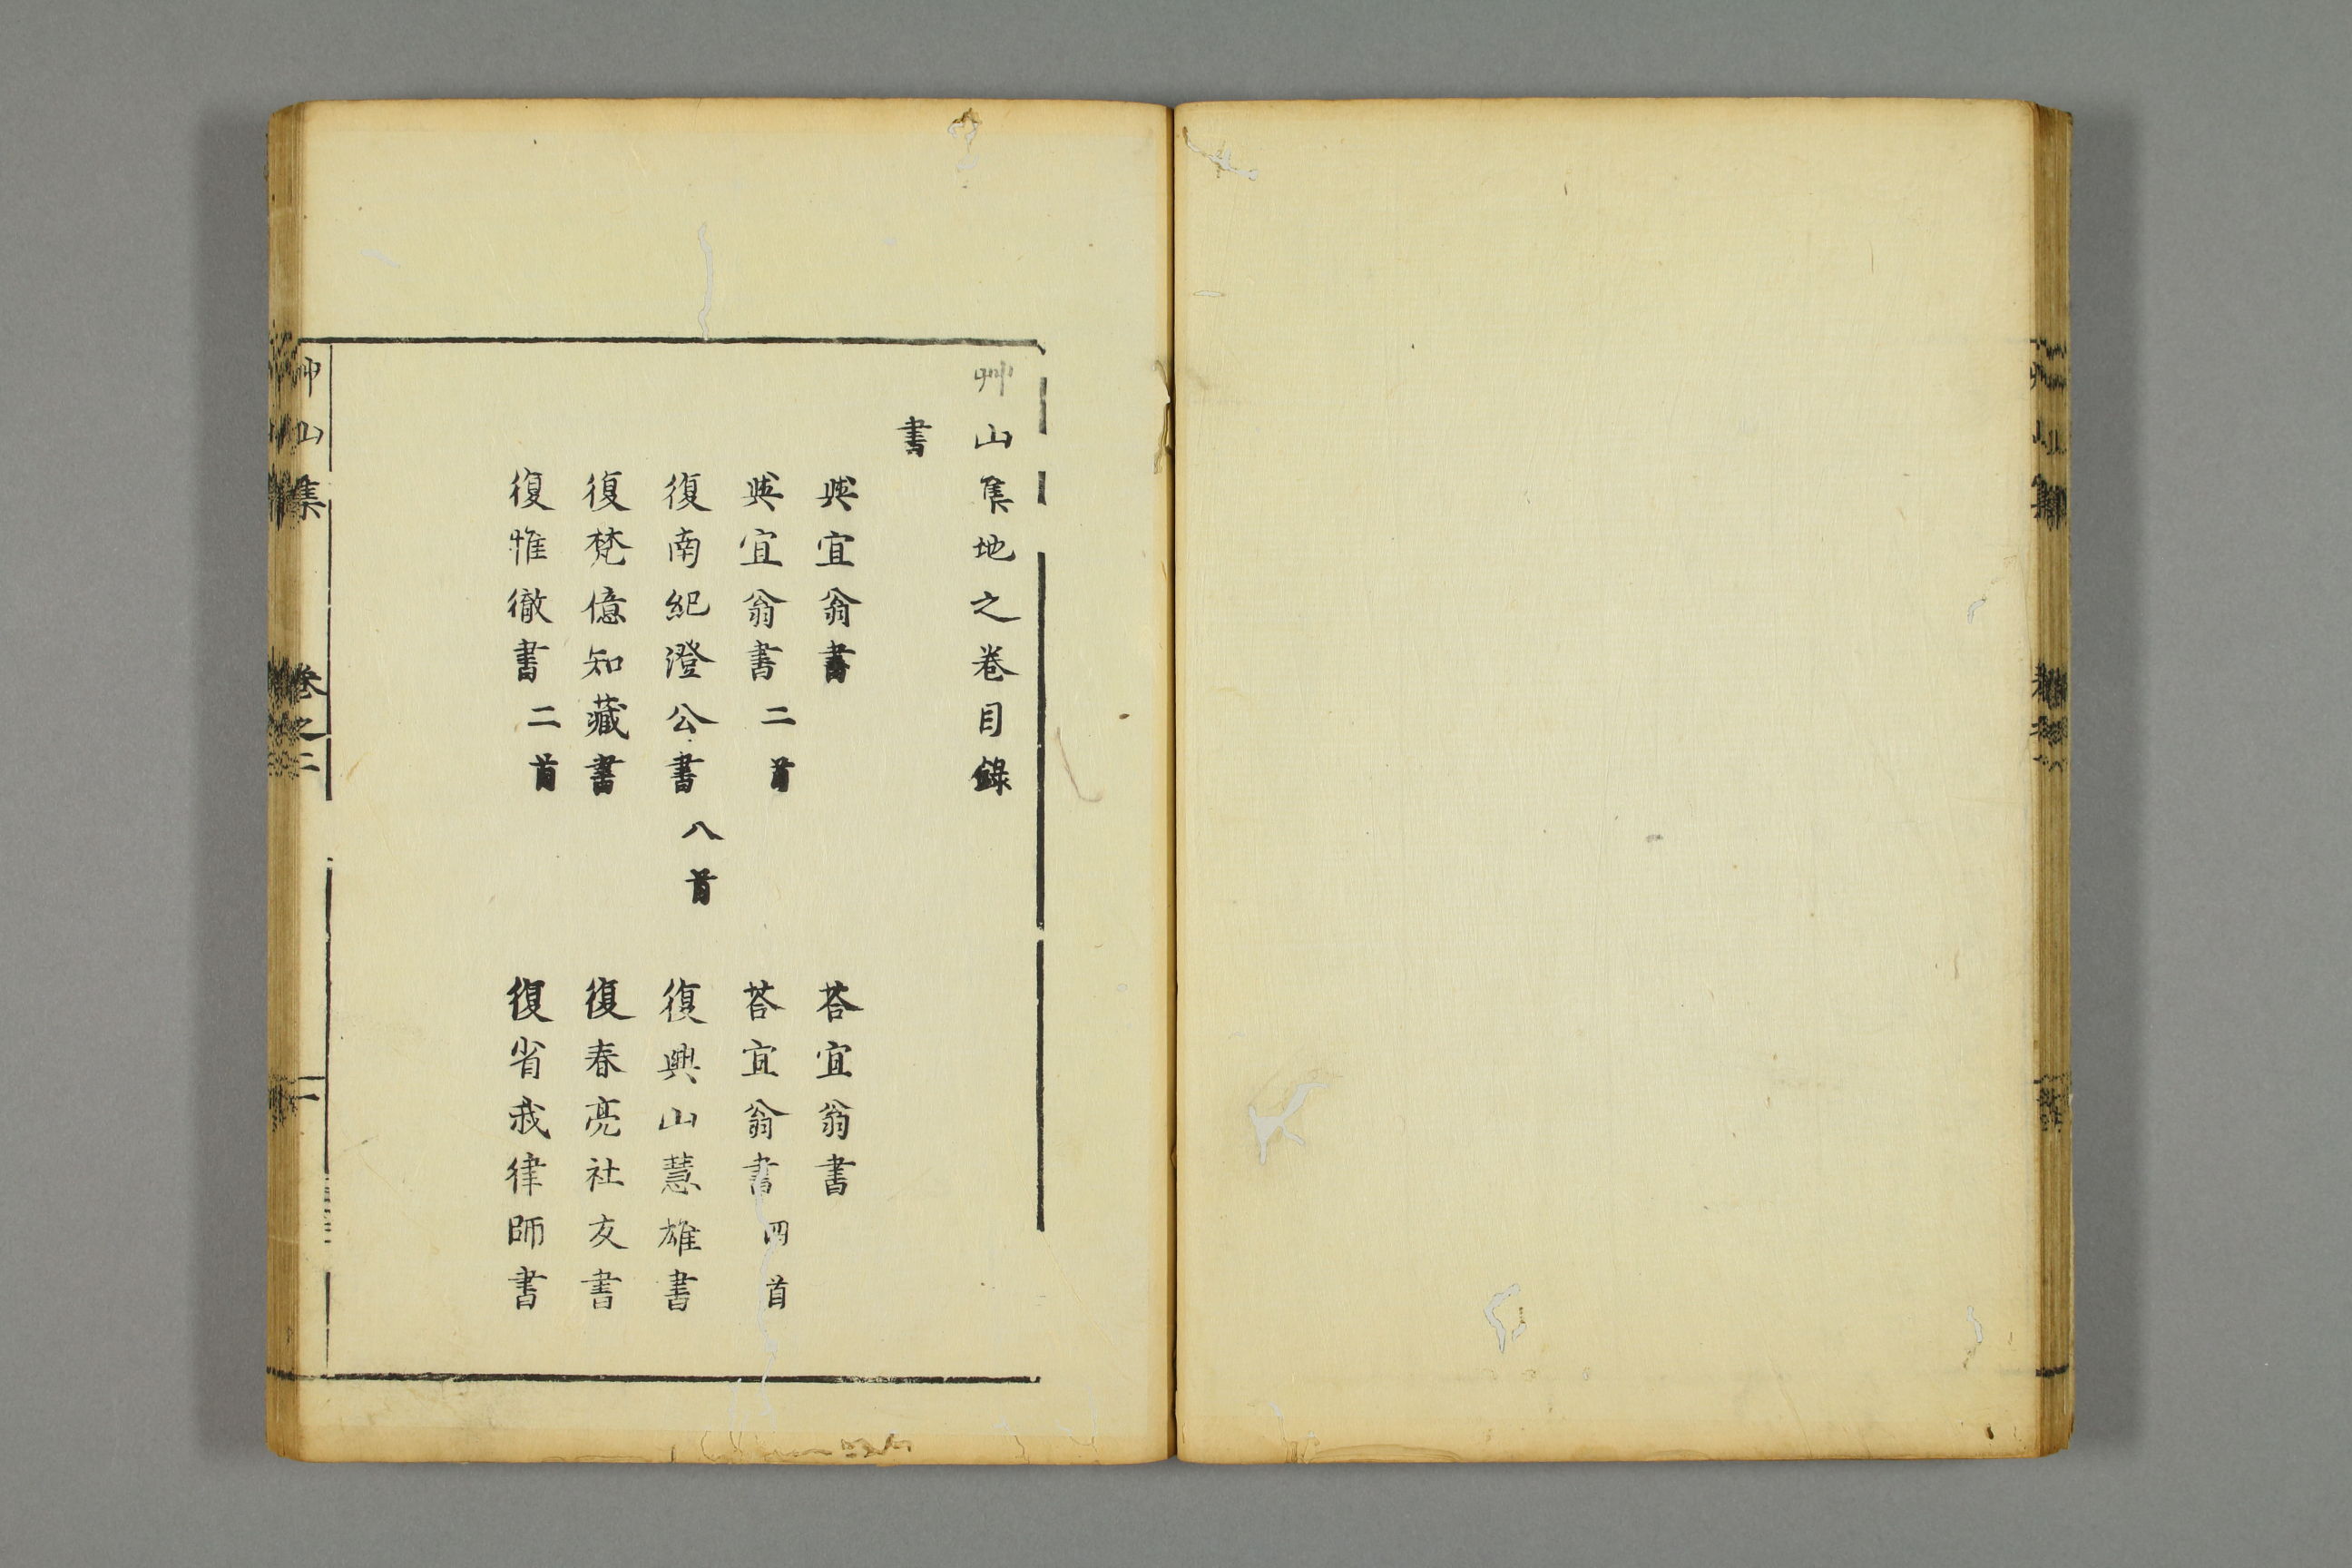 艸山集地之卷目錄
書
與宜翁書　荅宜翁書
與宜翁書 二首　荅宜翁書 四首
復南紀澄公書 八首　復興山慧雄書
復梵億知藏書　復春亮社友書
復惟徹書 二首　復省我律師書
艸山集　卷之二　一